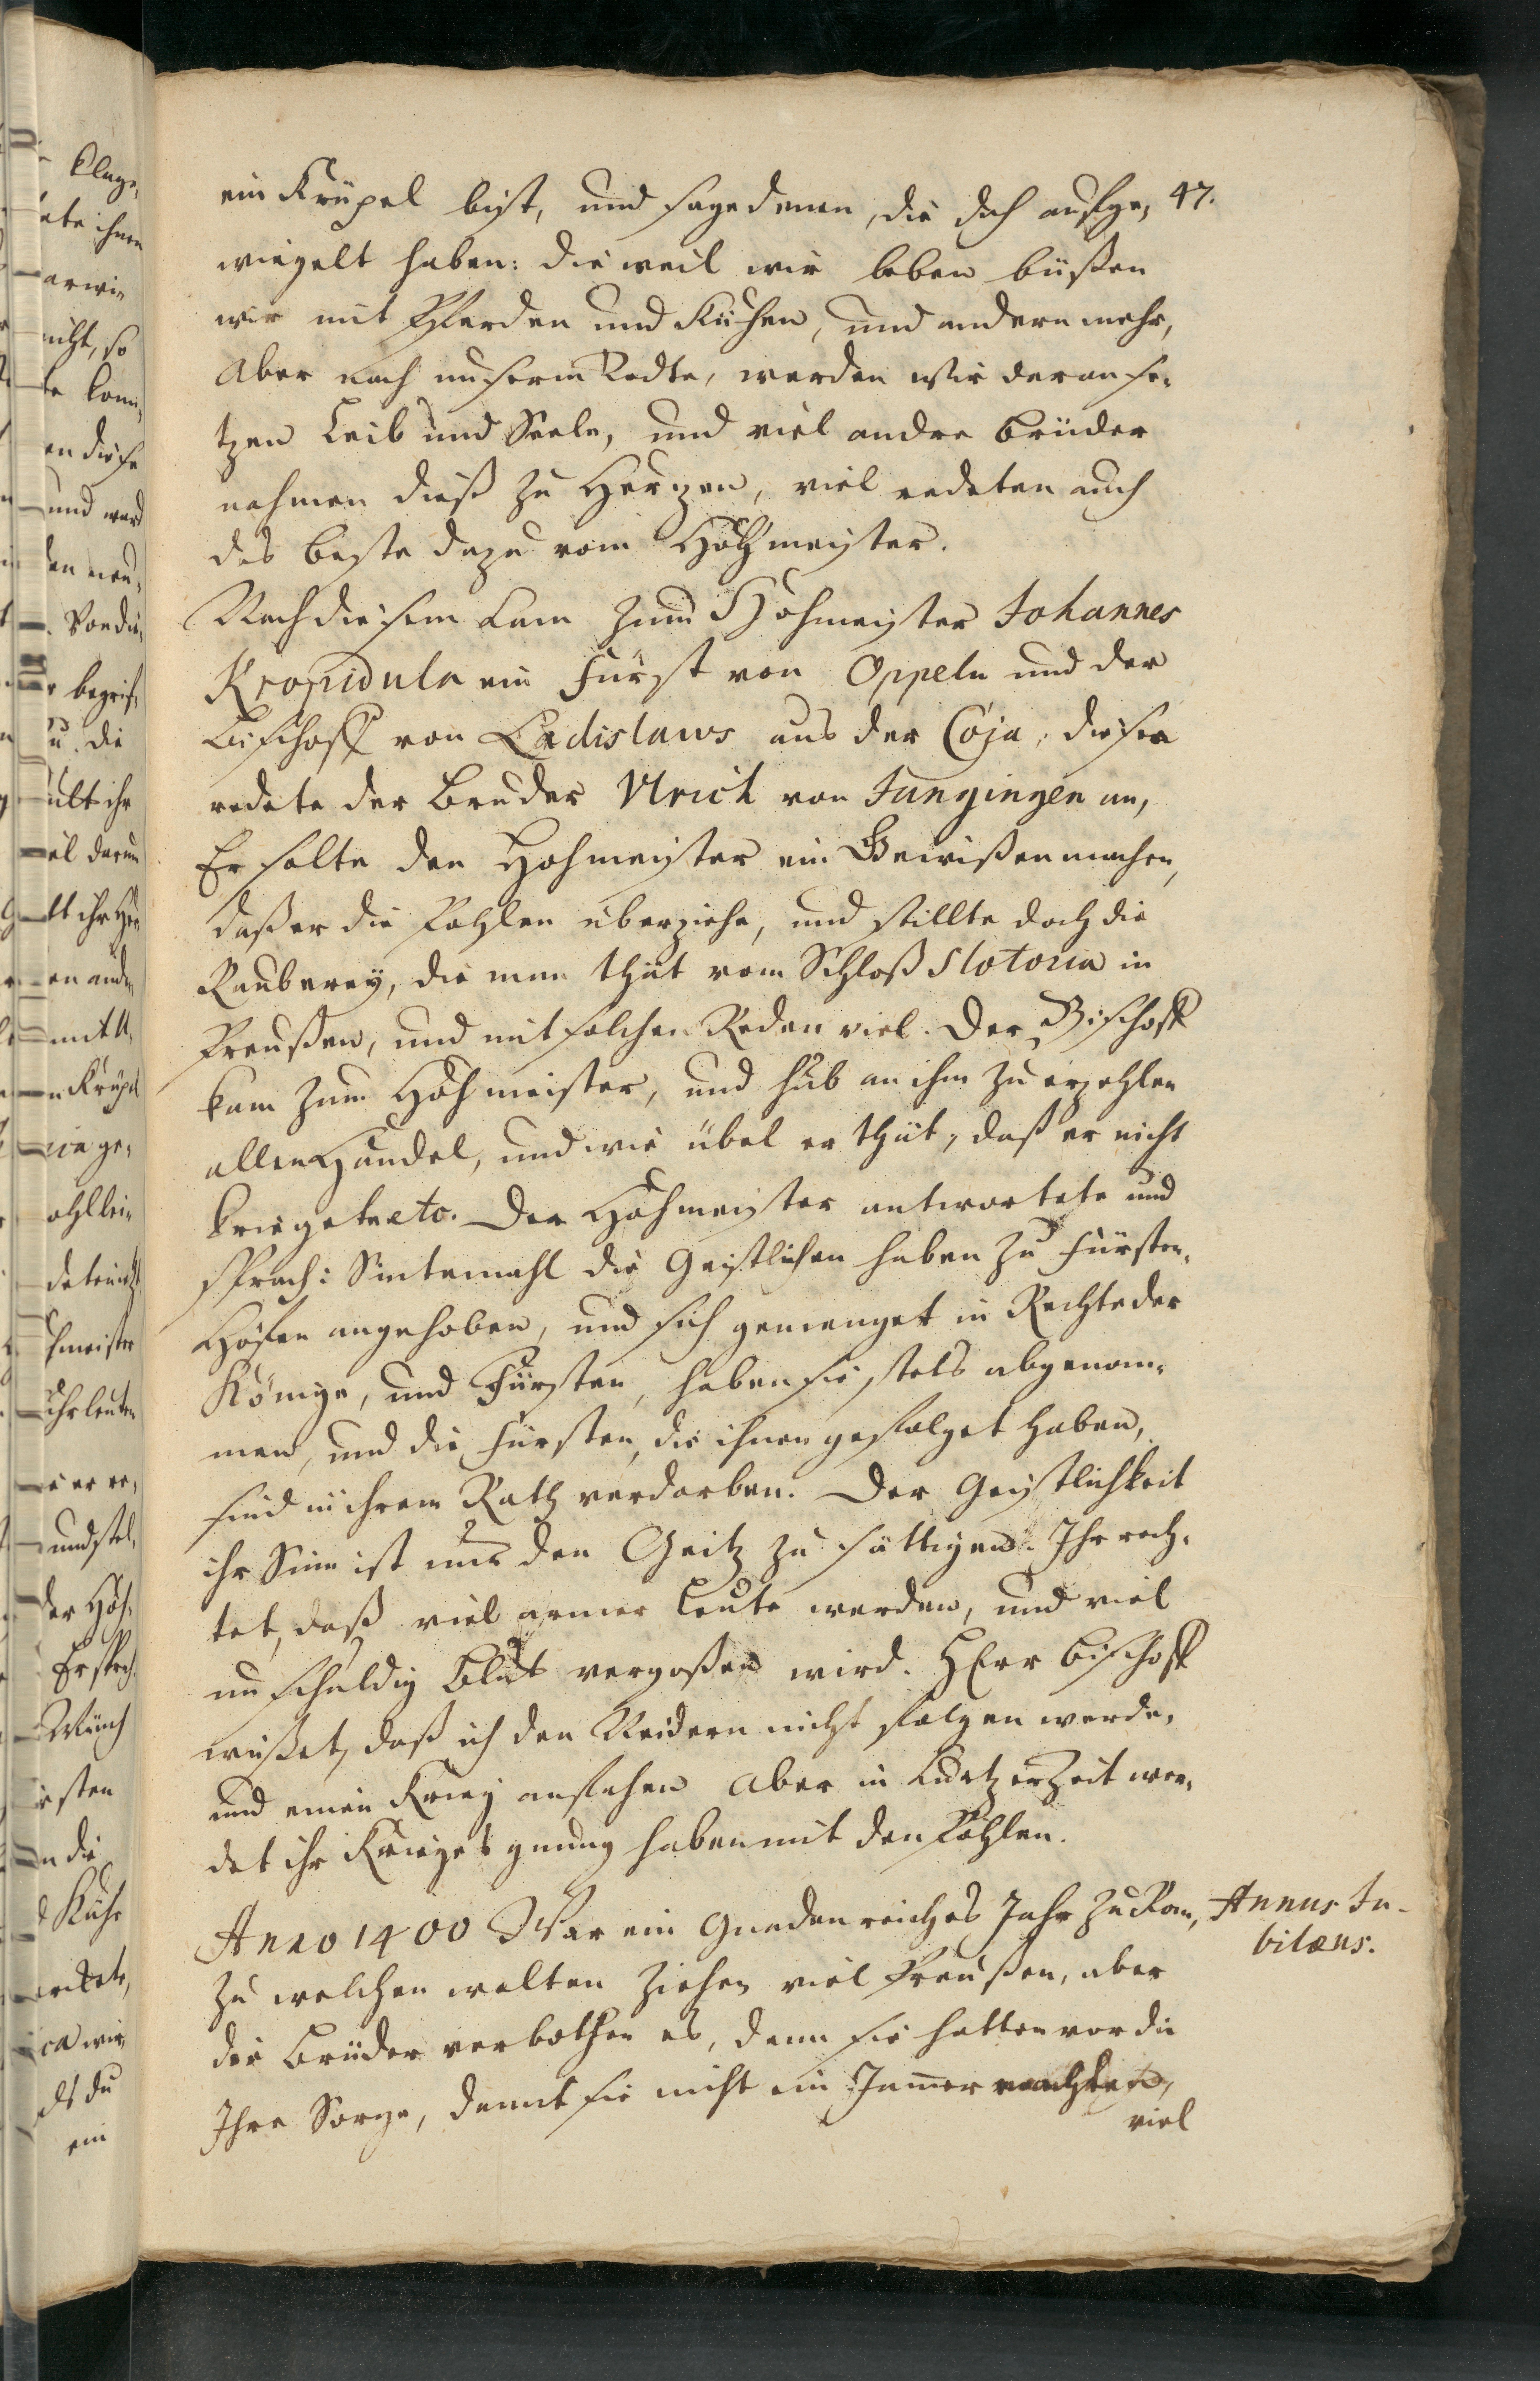 47.
ein Krüpel bist, und sage denen, die dich aufge„
wiegelt haben: die weil wir leben büßen
wir mit Pferden und Kühen, und andern mehr,
Aber nach unserm Todte, werden wir daran se„
tzen Leib und Seele, und viel andre Brüder
nahmen dieß zu Hertzen, viel redeten auch
das beste dazu vom Hohmeister.
Nach diesem kam zum Hohmeister Johannes
Kropidula ein Fürst von Oppeln und der
Bischoff von Ladislaws aus der Coja, diesen
redete der Bruder Ulrich von Jungingen an,
Er solte den Hohmeister ein Gewißen machen,
daß er die Pohlen überziehe, und stillte doch die
Rauberey, die man thut vom Schloß Slotoria in
Preußen, und mit solchen Reden viel. Der Bischoff
kam zum Hohmeister, und hub an ihm zu erzehlen
allen Handel, und wie übel er thut, daß er nicht
kriegete etc. Der Hohmeister antwortete und
sprach: Sintemahl die Geistlichen haben zu Fürsten„
Höfen angehoben, und sich gemenget in Rechte der
Könige, und Fürsten, haben sie stets abgenom„
men, und die Fürsten, die ihnen gefolget haben,
sind in ihrem Rath verdorben. Der Geistlichkeit
ihr Sinn ist nur den Geitz zu sättigen. Ihr rech„
tet, daß viel armer Leute werden, und viel
unschuldig Blut vergoßen wird. HErr Bischoff
wißet, daß ich den Neidern nicht folgen werde,
und einen Krieg anfahen Aber in kurtzer Zeit wer„
det ihr Krieges gnung haben mit den Pohlen.
Anno 1400 War ein Gnadenreiches Jahr zu Rom,
Annus Ju-
bilæus.
zu welchen wolten ziehen viel Preußen, aber
die Brüder verbothen es, denn sie hatten vor die
Ihre Sorge, damit sie nicht ein Jamer machten,
viel